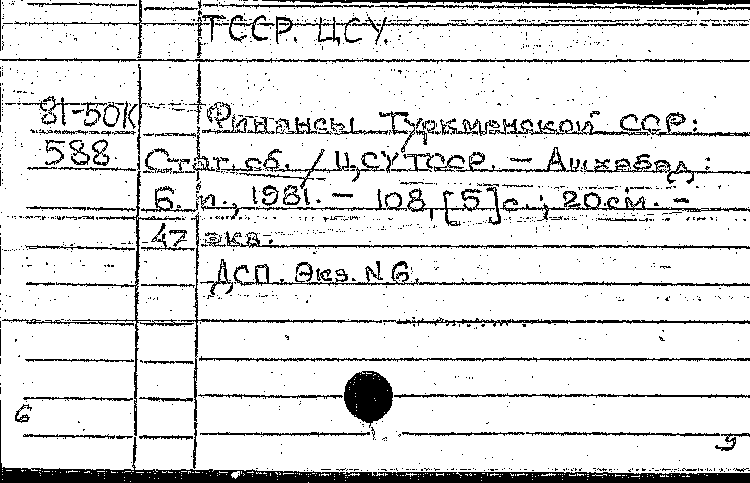 ТССР. ЦСУ.
81-50К Финансы Туркменской ССР:
588 Стат. сб. / ЦСУ ТССР. - Ашхабад:
Б. и., 1981. - 108, [5] с.; 20 см. -
47 экз.
ДСП. Экз. N 6.
6
9